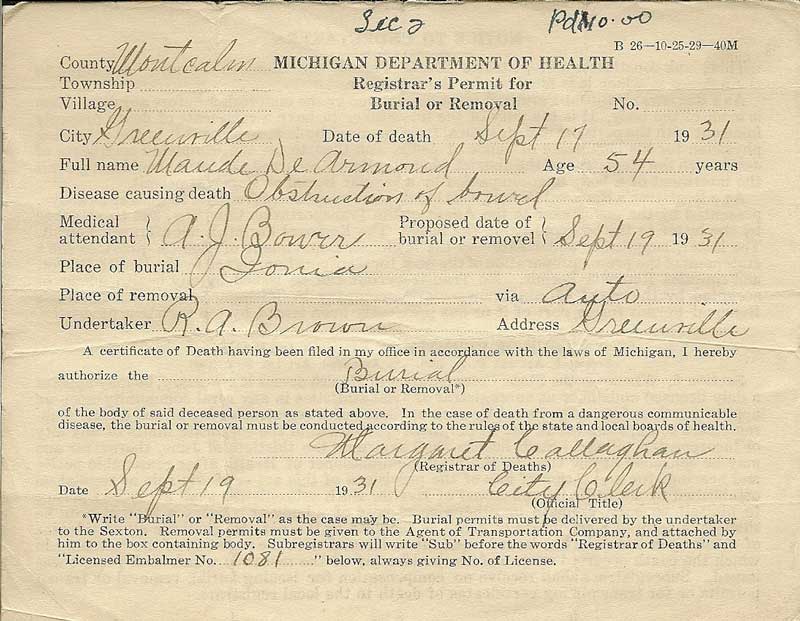 Sec 2 Pd $10.00
B 26—10-25-29—40M
County Montcalm MICHIGAN DEPARTMENT OF HEALTH
Township Registrar's Permit for
Village Burial or Removal No.
City Greenville Date of death Sept 17 1931
Full name Maude De Armond Age 54 years
Disease causing death Obstruction of bowel
Medical attendant A. J. Bower Proposed date of burial or removel Sept 19 1931
Place of burial Ionia
Place of removal via auto
Undertaker R. A. Brown Address Greenville
A certificate of Death having been filed in my office in accordance with the laws of Michigan, I hereby
authorize the Burial
(Burial or Removal*)
of the body of said deceased person as stated above. In the case of death from a dangerous communicable
disease, the burial or removal must be conducted according to the rules of the state and local boards of health.
Margaret Callaghan
(Registrar of Deaths)
Date Sept 19 1931 City Clerk
(Official Title)
*Write "Burial" or "Removal" as the case may be. Burial permits must be delivered by the undertaker
to the Sexton. Removal permits must be given to the Agent of Transportation Company, and attached by
him to the box containing body. Subregistrars will write "Sub" before the words "Registrar of Deaths" and
"Licensed Embalmer No. 1081 " below, always giving No. of License.